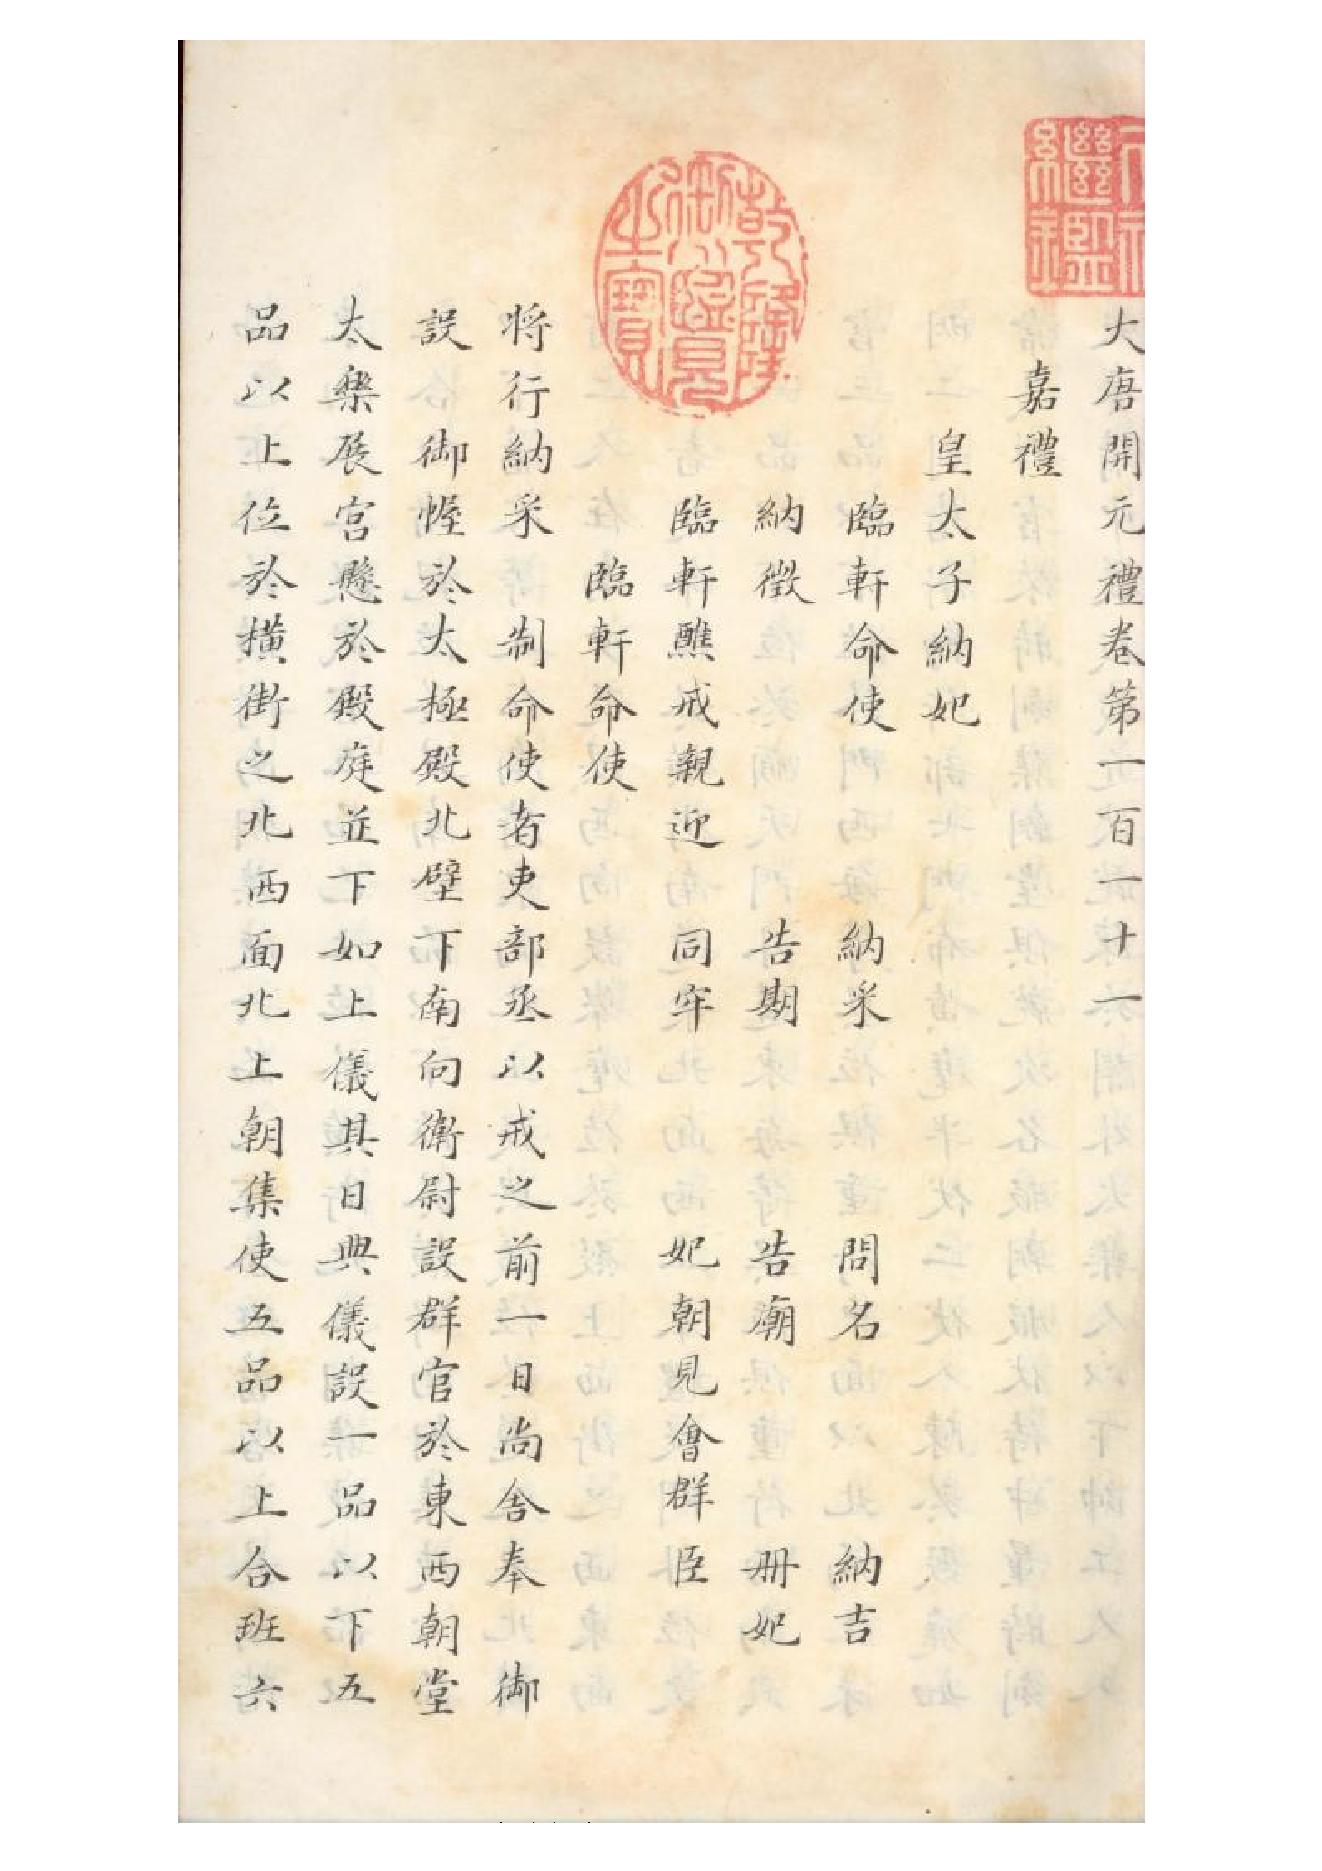 大唐開元禮卷第一百一十一
嘉禮
皇太子納妃
臨軒命使 納采 問名 納吉
納徵 告期 告廟 冊妃
臨軒醮戒 親迎 同牢 妃朝見 會群臣
臨軒命使
將行納采 制命使者吏部丞以戒之前一日尚舍奉御
設 御幄於太極殿北壁下南向衛尉設群官於東西朝堂
太樂展宮懸於殿庭並下如上儀其日典儀設一品以下五
品以上位於橫街之北西面北上朝集使五品以上合班六
乾隆御覽之寶
繼鑑